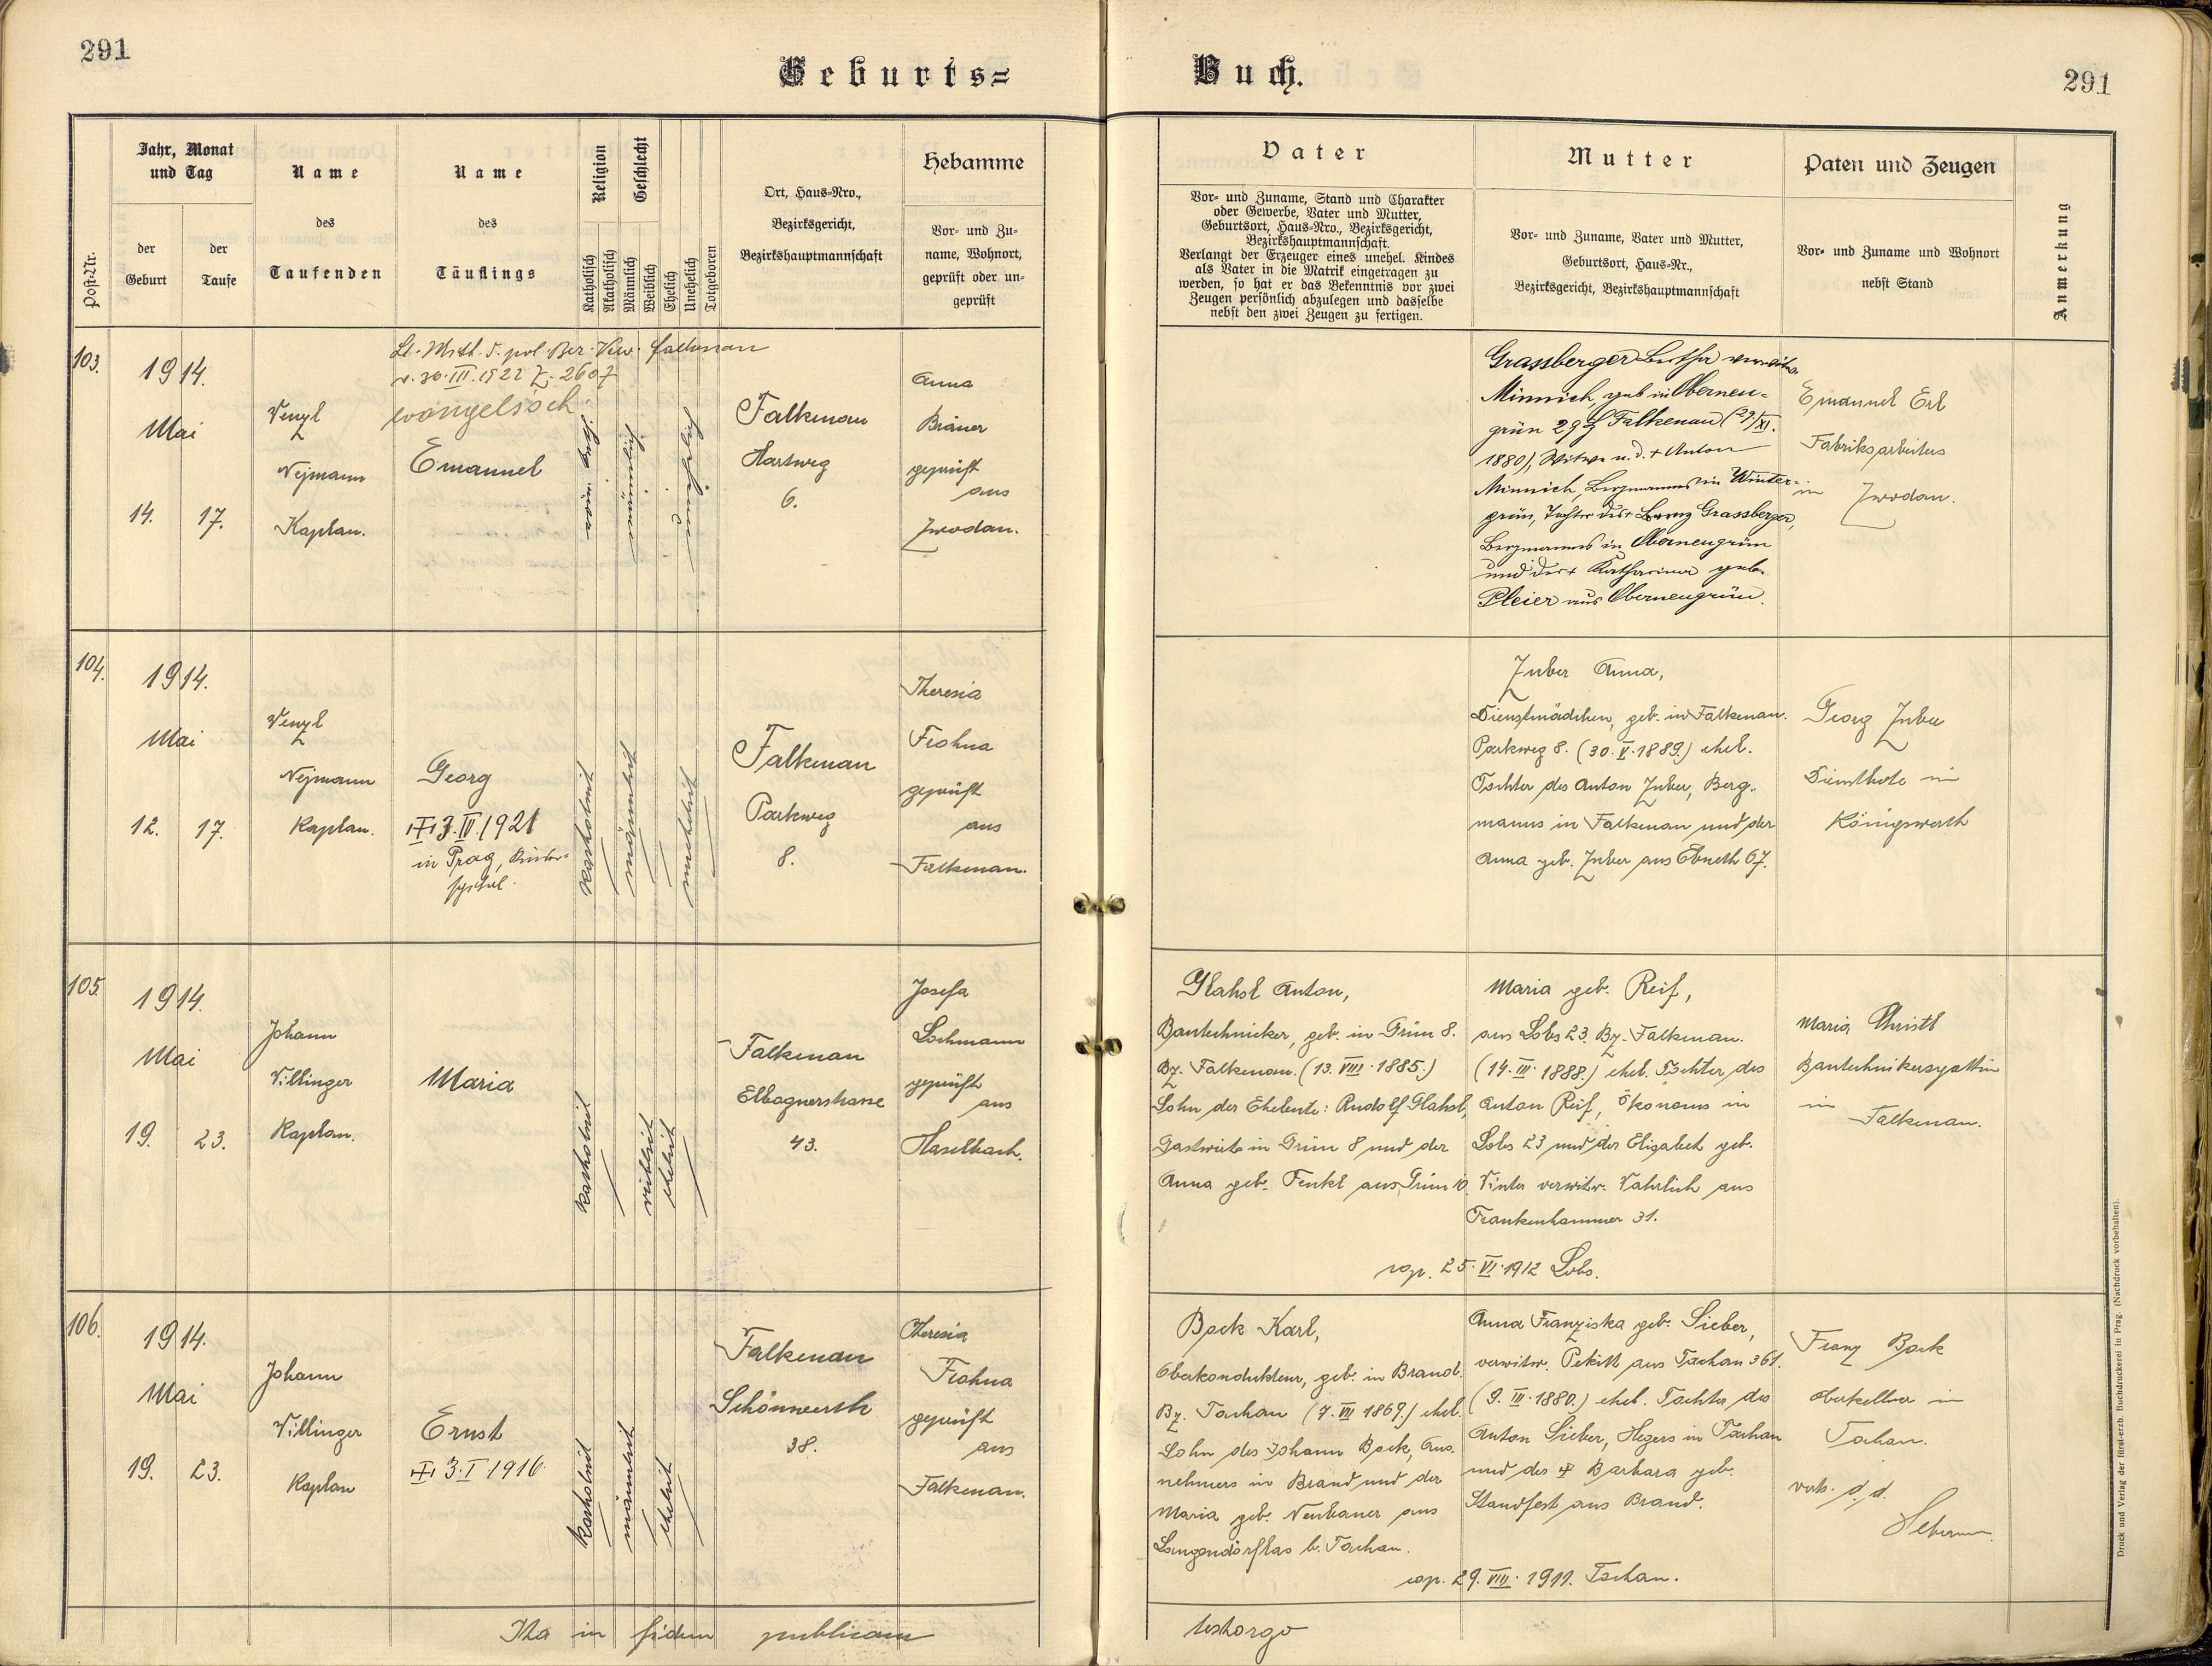 291
Geburts=
Jahr, Monat
und Tag
Name
Name
Religion
Geschlecht
Ort, Haus-Nro.,
Bezirksgericht,
Bezirkshauptmannschaft
Hebamme
Post-Nr.
der
Geburt
der
Taufe
des
Taufenden
des
Täuflings
Katholisch
Akatholisch
Männlich
Weiblich
Ehelich
Unehelich
Totgeboren
Vor- und Zu-
name, Wohnort,
geprüft oder un-
geprüft
103.
1914.
Mai
14. 17.
Venzl
Nejmann
Kaplan.
Lt. Mith. d. pol. Bez. Verw. Falkenau
v. 30.III.1922 Z. 2607
evangelisch
Emanuel
röm. kath.
männlich
unehelich
Falkenau
Hartweg
6.
Anna
Bräuer
geprüft
aus
Zwodau.
104.
1914.
Mai
12. 17.
Venzl
Nejmann
Kaplan.
Georg
3.IV.1921
in Prag, Kinder-
spital.
katholisch
männlich
unehelich
Falkenau
Parkweg
8.
Theresia
Frohna
geprüft
aus
Falkenau.
105.
1914.
Mai
19. 23.
Johann
Villinger
Kaplan.
Maria
katholisch
weiblich
ehelich
Falkenau
Elbognerstrasse
43.
Josefa
Lochmann
geprüft
aus
Haselbach.
106.
1914.
Mai
19. 23.
Johann
Villinger
Kaplan
Ernst
3.I 1916
katholisch
männlich
ehelich
Falkenau
Schönwerth
38.
Theresia
Frohna
geprüft
aus
Falkenau.
Ita in fidem publicam
Buch.
291
Vater
Mutter
Paten und Zeugen
Anmerkung
Vor- und Zuname, Stand und Charakter
oder Gewerbe, Vater und Mutter,
Geburtsort, Haus-Nro., Bezirksgericht,
Bezirkshauptmannschaft.
Verlangt der Erzeuger eines unehel. Kindes
als Vater in die Matrik eingetragen zu
werden, so hat er das Bekenntnis vor zwei
Zeugen persönlich abzulegen und dasselbe
nebst den zwei Zeugen zu fertigen.
Vor- und Zuname, Vater und Mutter,
Geburtsort, Haus-Nr.,
Bezirksgericht, Bezirkshauptmannschaft
Vor- und Zuname und Wohnort
nebst Stand
Grassberger Bertha verwitw.
Minnich, geb. in Oberneu-
grün 29 Falkenau (29/XI.
1880), Witwe n. d. + Anton
Minnich, Bergmanns in Winter-
grün, Tochter des + Lorenz Grassberger,
Bergmanns in Oberneugrün
und der + Katharina geb.
Pleier aus Oberneugrün.
Emanuel Erl
Fabriksarbeiters
in Zwodau.
Zuber Anna,
Dienstmädchen, geb. in Falkenau.
Parkweg 8. (30.V.1889.) ehel.
Tochter des Anton Zuber, Berg-
manns in Falkenau und der
Anna geb. Zuber aus Ebmeth 67.
Georg Zuber
Dienstbote in
Königswerth
Glahsl Anton,
Bautechniker, geb. in Grün 8.
Bz. Falkenau. (13.VIII.1885.)
Sohn der Eheleute: Rudolf Glahsl,
Gastwirts in Grün 8 und der
Anna geb. Fenkl aus Grün 10.
Maria geb. Reif,
aus Lobs 23. Bz. Falkenau.
(14.III.1888.) ehel. Tochter des
Anton Reif, Ökonoms in
Lobs 23 und der Elisabet geb.
Vinter verwitw. Vahrlich aus
Frankenhammer 31.
cop. 25.VI.1912 Lobs.
Maria Christl
Bautechnikersgattin
in
Falkenau.
Bock Karl,
Oberkondukteur, geb. in Brand.
Bz. Tachau (7.VII 1869.) ehel.
Sohn des Johann Bock, Aus-
nehmers in Brand und der
Maria geb. Neubauer aus
Langendörflas b. Tachau.
Anna Franziska geb. Sieber,
verwitw. aus Tachau 361.
(9.III.1880.) ehel. Tochter des
Anton Sieber, Hegers in Tachau
und der Barbara geb.
Standfest aus Brand.
cop. 29.VIII.1911. Tachau.
Franz Bock
Oberkellner in
Tachau.
testorgo
Druck und Verlag der fürst-erzb. Buchdruckerei in Prag. (Nachdruck vorbehalten).